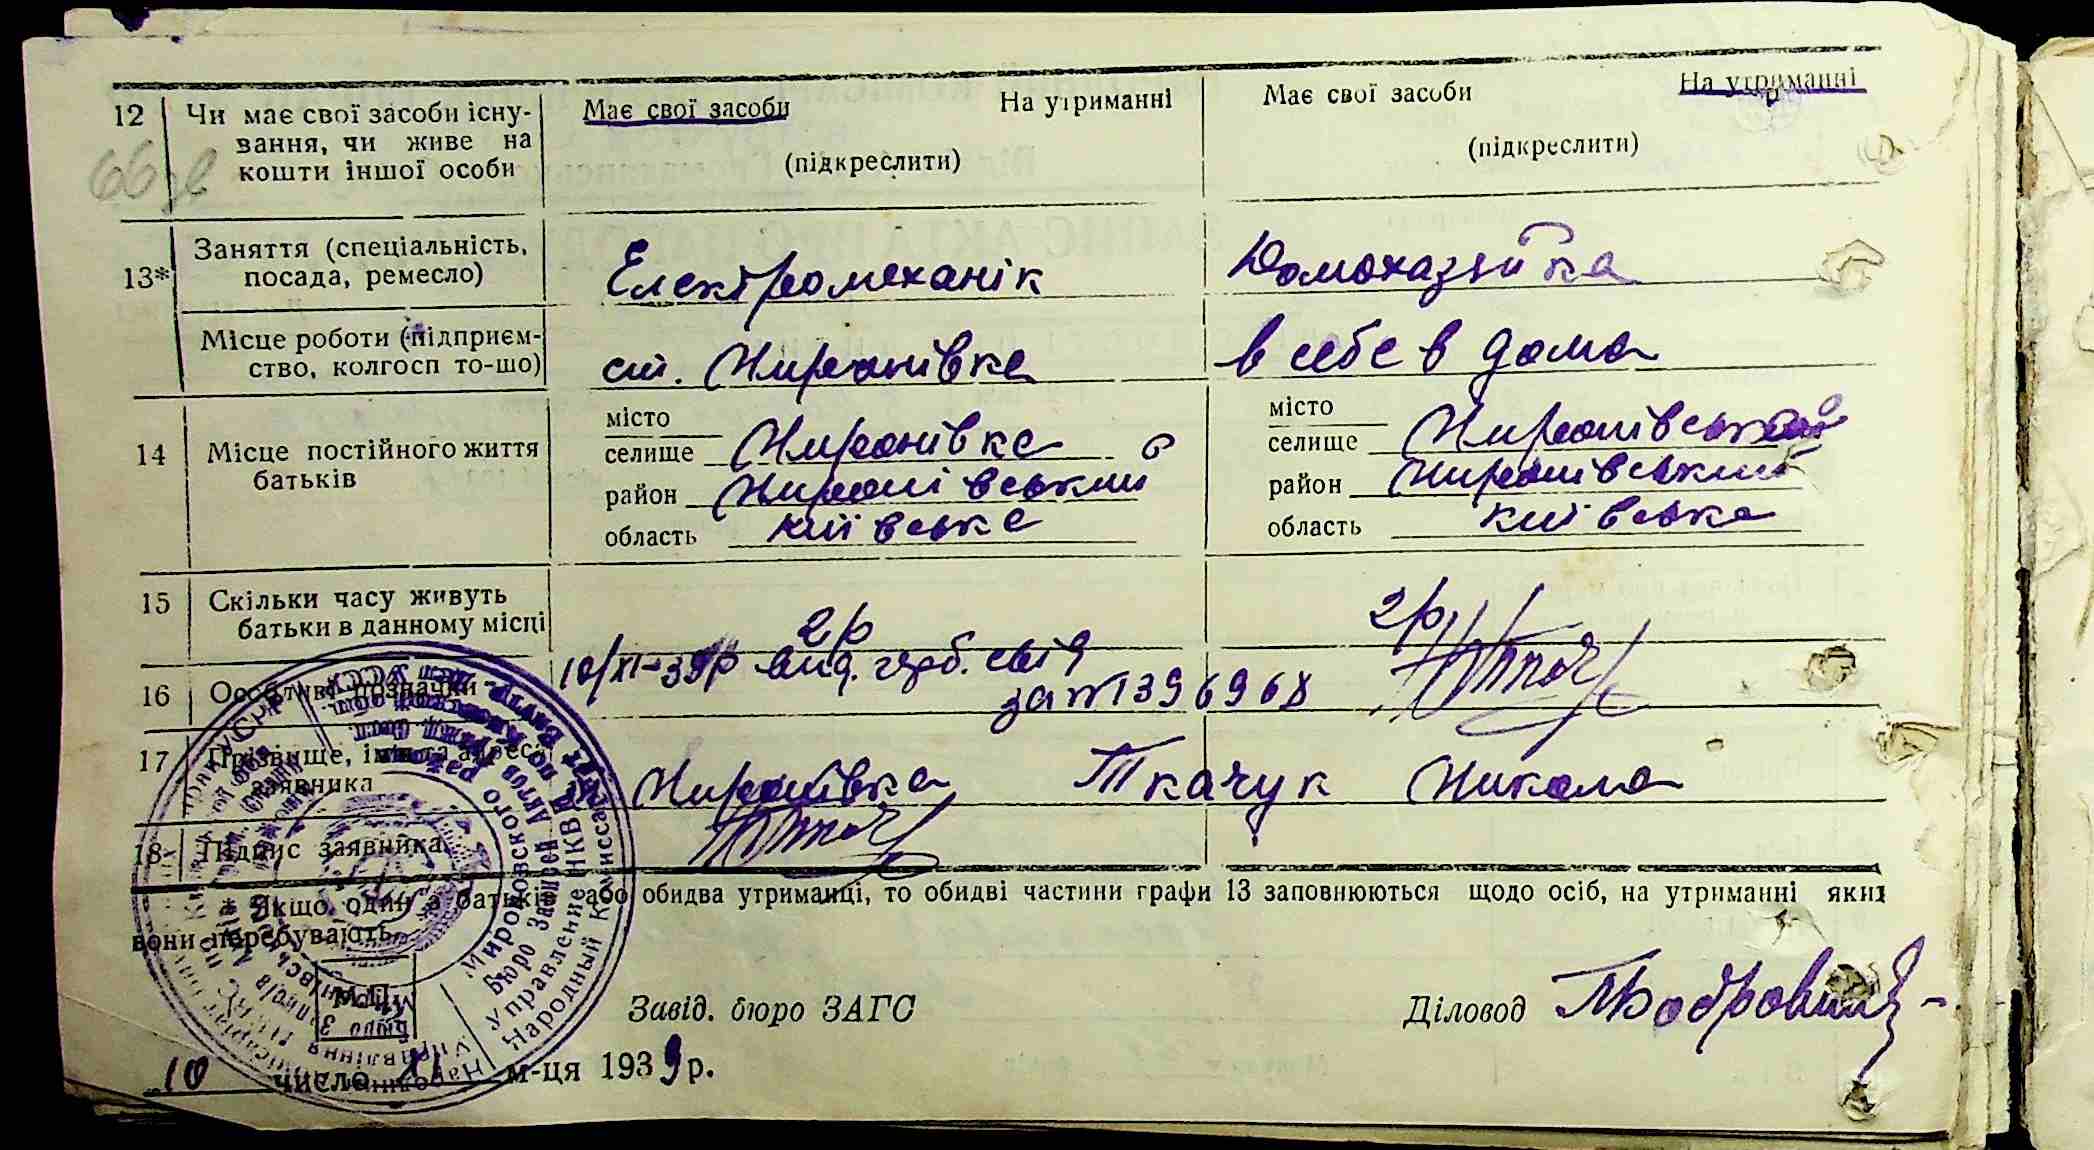 12 Чи має свої засоби існу- Має свої засоби На утриманні Має свої засоби На утриманні
вання, чи живе на (підкреслити) (підкреслити)
кошти іншої особи
13* Заняття (спеціальність, посада, ремесло) Електромеханік Домохазяйка
Місце роботи (підприєм-
ство, колгосп то-що) ст. Миронівка в себе в дома
14 Місце постійного життя
батьків
місто
селище Миронівка
район Миронівський
область київська
місто
селище Миронівський
район Миронівський
область київська
15 Скільки часу живуть
батьки в данному місці 2р 2р
16 Особливі позначки 10/XI-39р вид. герб. свід
за № 1396968
17 Прізвище, ім'я та адреса
заявника Миронівка Ткачук Микола
18 Підпис заявника
* Якщо один з батьків або обидва утриманці, то обидві частини графи 13 заповнюються щодо осіб, на утриманні яких
вони перебувають.
М.П.
Завід. бюро ЗАГС Діловод
10 число XI м-ця 1939 р.
Мироновского
Бюро Записей Актов
Управление НКВД
Народный Комиссариат